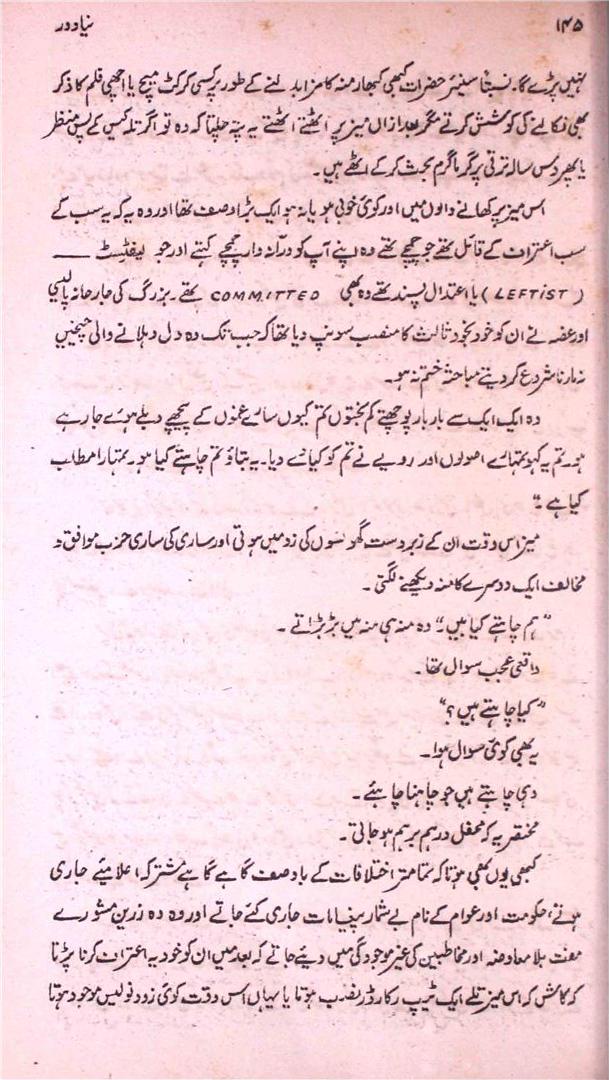 ۱۴۵ نیا دور
نہیں پڑے گا۔ نسبتاً سینئر حضرات کبھی کبھار منہ کا مزا بدلنے کے طور پر کسی کرکٹ میچ یا اچھی فلم کا ذکر
بھی نکالنے کی کوشش کرتے مگر بعد ازاں میز پر اٹھتے اٹھتے یہ پتہ چلتا کہ وہ تو اگرتلہ کیس کے پس منظر
یا پھر دس سالہ ترقی پر گرماگرم بحث کر کے اٹھے ہیں۔
اس میز پر کھانے والوں میں اور کوئی خوبی ہو یا نہ ہو ایک بڑا وصف تھا اور وہ یہ کہ یہ سب کے
سب اعتراف کے قائل تھے جو چمچے تھے وہ اپنے آپ کو دڑانہ دار چمچے کہتے اور جو لیفٹسٹ ——
(LEFTIST) یا اعتدال پسند تھے وہ بھی COMMITTED تھے۔ بزرگ کی جارحانہ پالیسی
اور غصہ نے ان کو خود بخود ثالث کا منصب سونپ دیا تھا کہ جب تک وہ دل دہلانے والی چیخیں
نہ مارنا شروع کر دیتے مباحثہ ختم نہ ہو۔
وہ ایک ایک سے بار بار پوچھتے کم بختوں تم کیوں سائے غموں کے پیچھے دبلے ہوئے جا رہے
ہو۔ تم یہ کہو تمہارے اصولوں اور رویے نے تم کو کیا دے دیا۔ یہ بتاؤ تم چاہتے کیا ہو۔ تمہارا مطلب
کیا ہے۔"
میز اس وقت ان کے زبردست گھونسوں کی زد میں ہوتی اور ساری کی ساری حزب موافق و
مخالف ایک دوسرے کا منہ دیکھنے لگتی۔
"ہم چاہتے کیا ہیں۔" وہ منہ ہی منہ میں بڑبڑاتے۔
واقعی عجب سوال تھا۔
"کیا چاہتے ہیں؟"
یہ بھی کوئی سوال ہوا۔
وہی چاہتے ہیں جو چاہنا چاہئے۔
مختصر یہ کہ محفل درہم برہم ہو جاتی۔
کبھی یوں بھی ہوتا کہ تمامتر اختلافات کے باوصف گاہے گاہے مشترکہ اعلامیئے جاری
ہوتے، حکومت اور عوام کے نام بے شمار پیغامات جاری کئے جاتے اور وہ وہ زرین مشورے
مفت بلا معاوضہ اور مخاطبین کی غیر موجودگی میں دیئے جاتے کہ بعد میں ان کو خود یہ اعتراف کرنا پڑتا
کہ کاش کہ اس میز تلے ایک ٹیپ رکارڈر نصب ہوتا یا یہاں اس وقت کوئی زود نویس موجود ہوتا